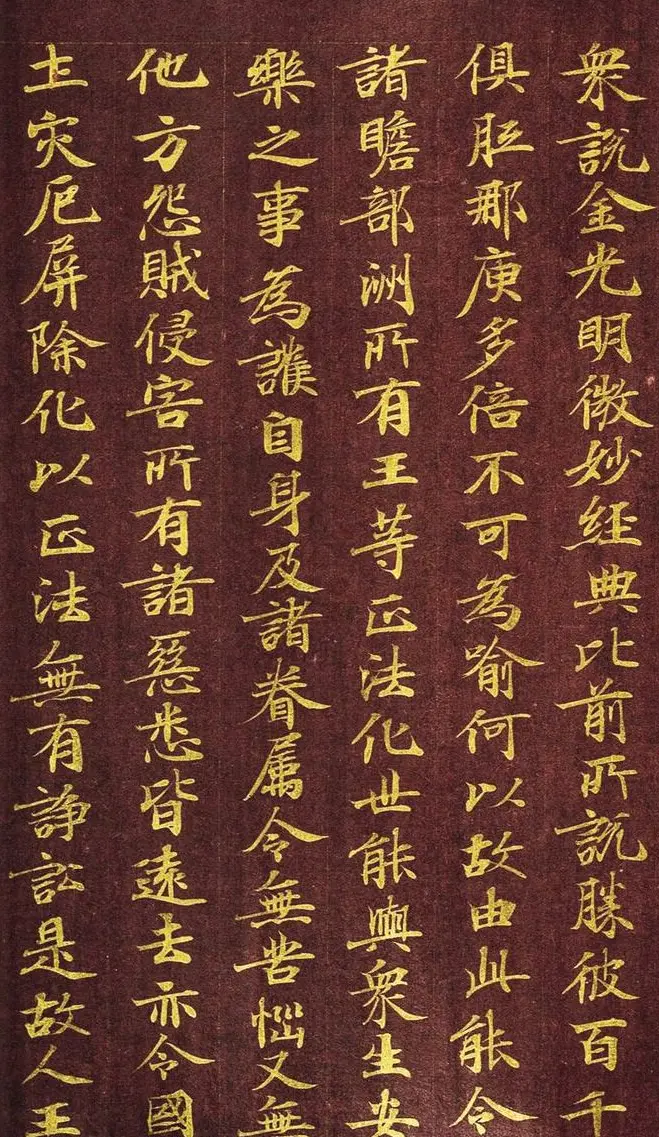 衆說金光明微妙經典比前所說勝彼百千
俱胝那庾多倍不可為喻何以故由此能令
諸贍部洲所有王等正法化世能與衆生安
樂之事為護自身及諸眷属令無苦惱又無
他方怨賊侵害所有諸惡悉皆遠去亦令國
土灾厄屏除化以正法無有諍訟是故人王